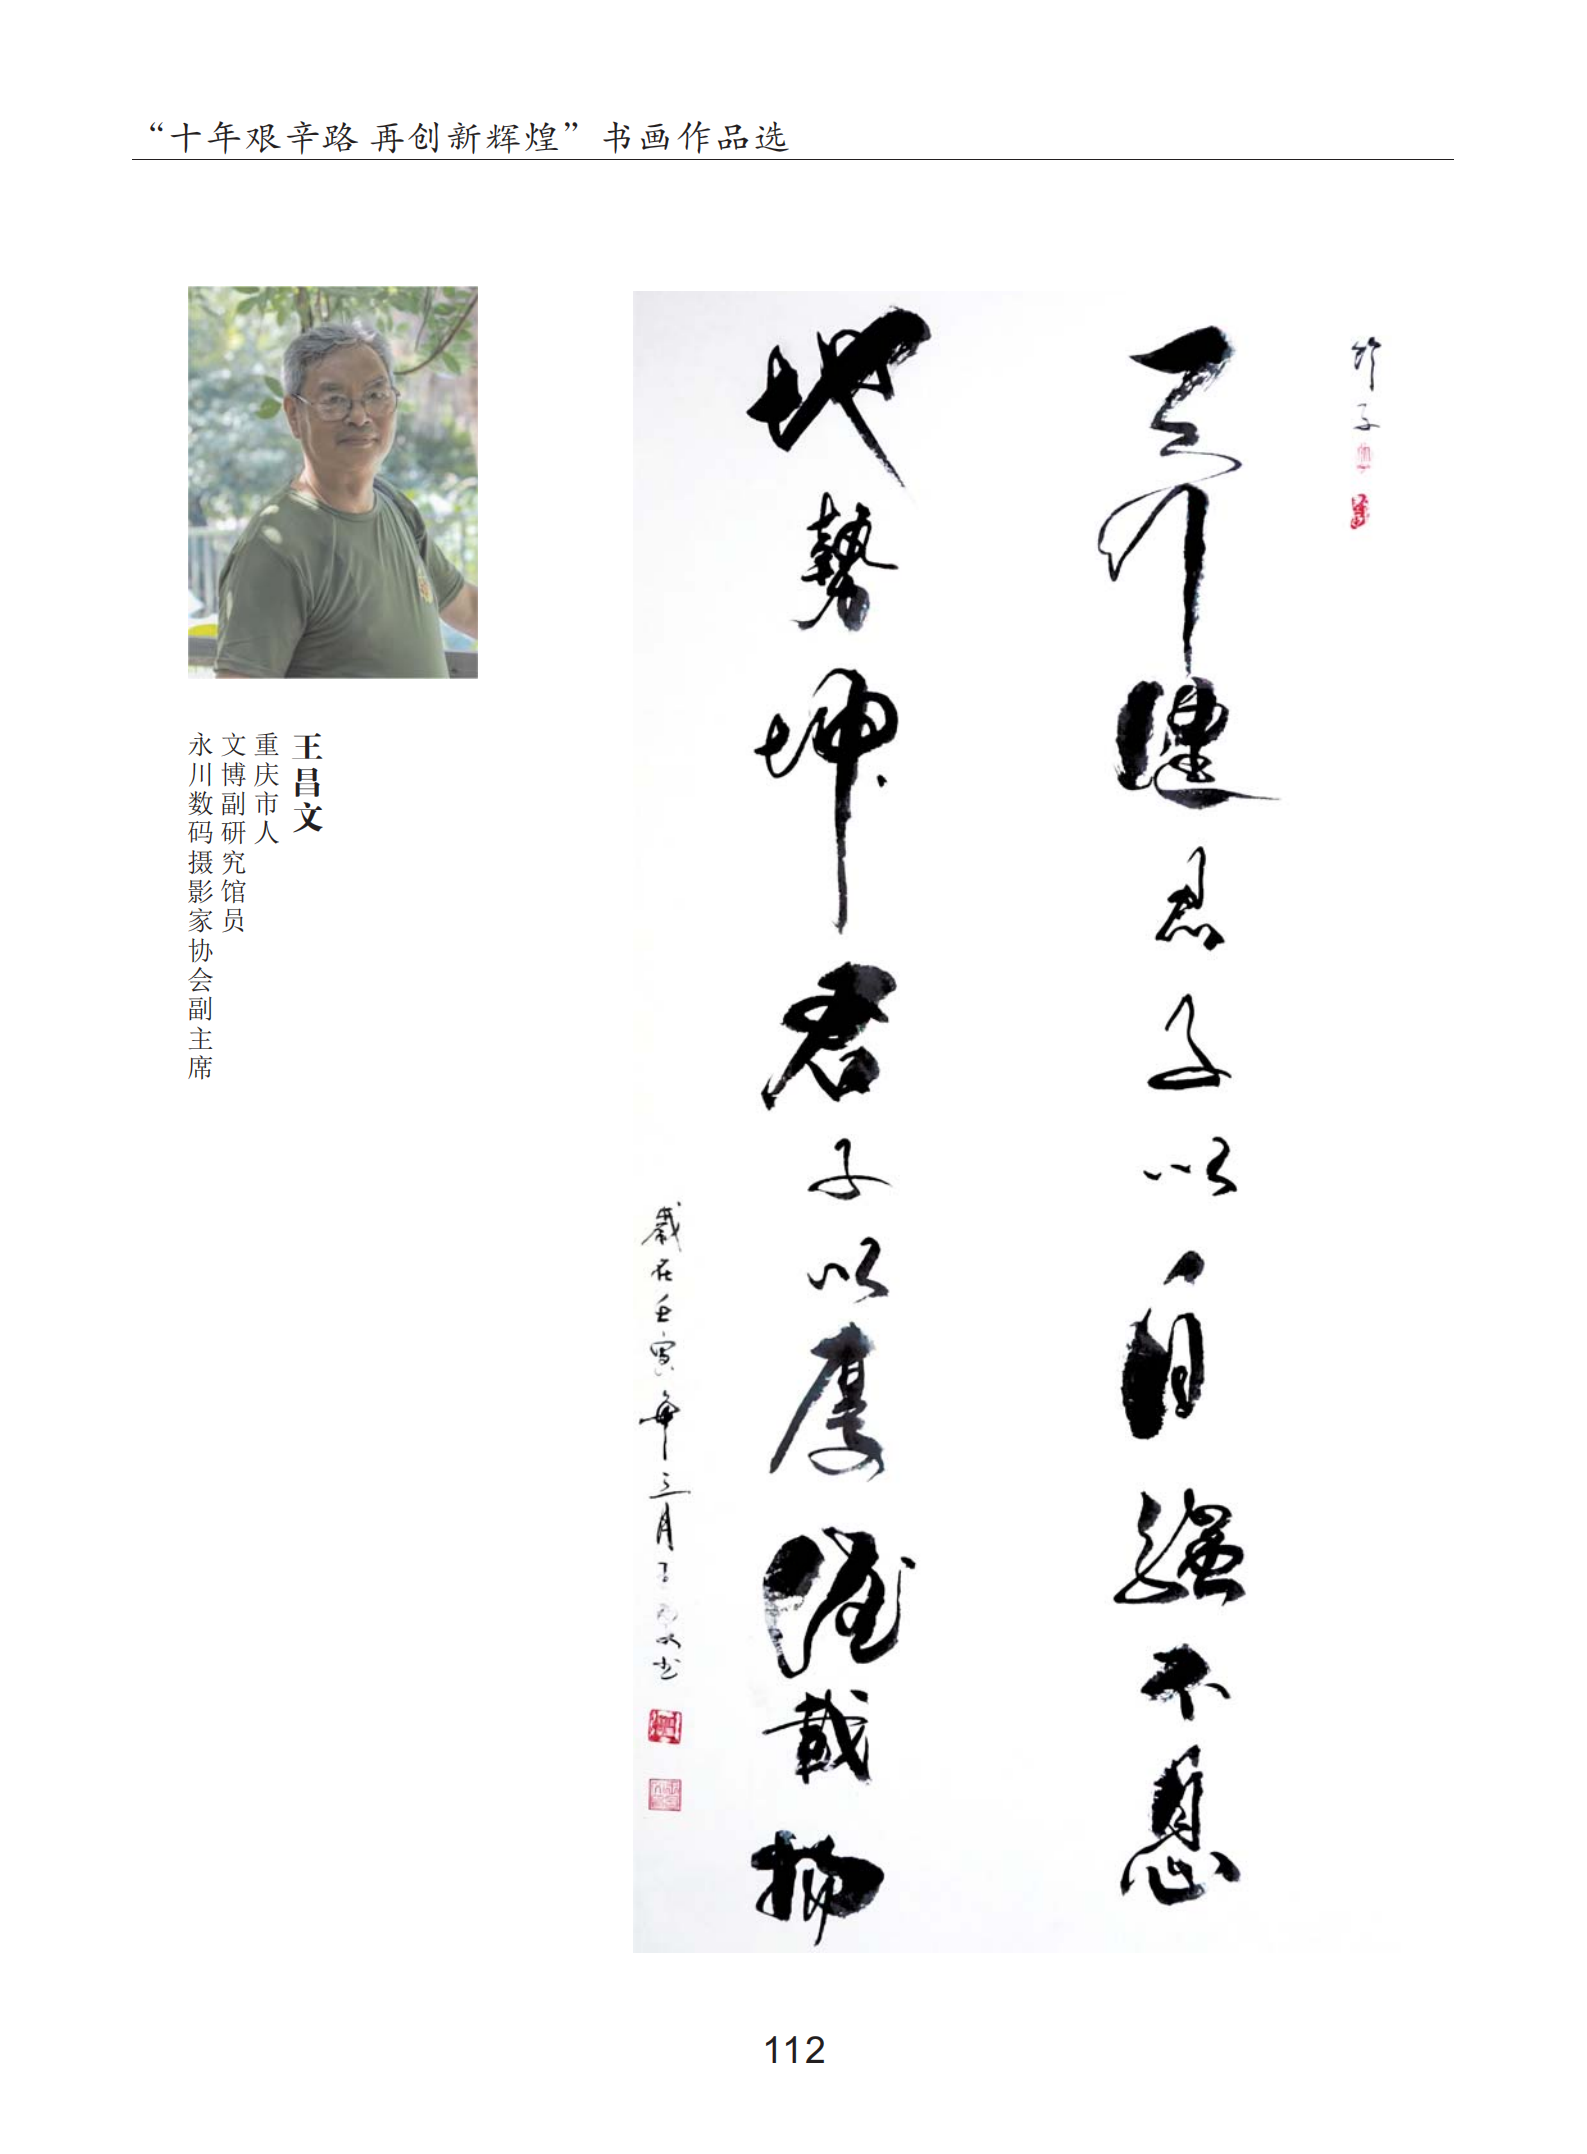 “十年艰辛路 再创新辉煌”书画作品选
王昌文
重庆市人
文博副研究馆员
永川数码摄影家协会副主席
天行健君子以自强不息
地勢坤君子以厚德載物
歲在壬寅年三月王昌文书
112